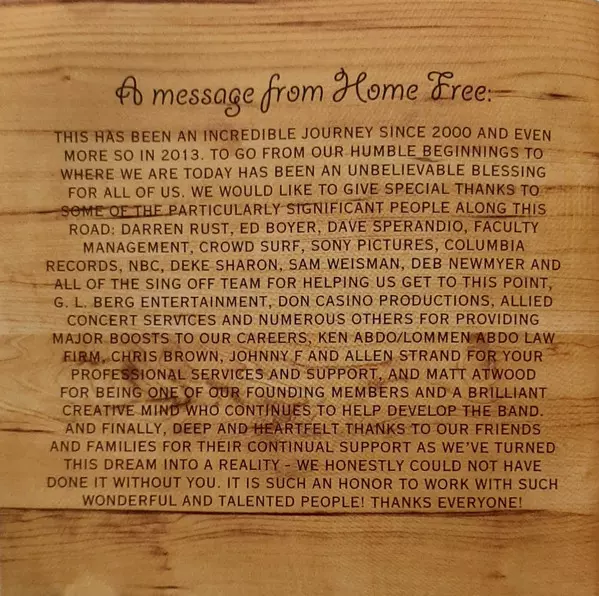 A message from Home Free:
THIS HAS BEEN AN INCREDIBLE JOURNEY SINCE 2000 AND EVEN
MORE SO IN 2013. TO GO FROM OUR HUMBLE BEGINNINGS TO
WHERE WE ARE TODAY HAS BEEN AN UNBELIEVABLE BLESSING
FOR ALL OF US. WE WOULD LIKE TO GIVE SPECIAL THANKS TO
SOME OF THE PARTICULARLY SIGNIFICANT PEOPLE ALONG THIS
ROAD: DARREN RUST, ED BOYER, DAVE SPERANDIO, FACULTY
MANAGEMENT, CROWD SURF, SONY PICTURES, COLUMBIA
RECORDS, NBC, DEKE SHARON, SAM WEISMAN, DEB NEWMYER AND
ALL OF THE SING OFF TEAM FOR HELPING US GET TO THIS POINT,
G. L. BERG ENTERTAINMENT, DON CASINO PRODUCTIONS, ALLIED
CONCERT SERVICES AND NUMEROUS OTHERS FOR PROVIDING
MAJOR BOOSTS TO OUR CAREERS, KEN ABDO/LOMMEN ABDO LAW
FIRM, CHRIS BROWN, JOHNNY F AND ALLEN STRAND FOR YOUR
PROFESSIONAL SERVICES AND SUPPORT, AND MATT ATWOOD
FOR BEING ONE OF OUR FOUNDING MEMBERS AND A BRILLIANT
CREATIVE MIND WHO CONTINUES TO HELP DEVELOP THE BAND.
AND FINALLY, DEEP AND HEARTFELT THANKS TO OUR FRIENDS
AND FAMILIES FOR THEIR CONTINUAL SUPPORT AS WE'VE TURNED
THIS DREAM INTO A REALITY - WE HONESTLY COULD NOT HAVE
DONE IT WITHOUT YOU. IT IS SUCH AN HONOR TO WORK WITH SUCH
WONDERFUL AND TALENTED PEOPLE! THANKS EVERYONE!